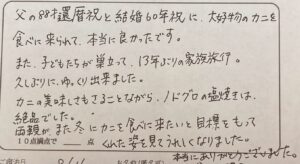 父の88才還暦祝と結婚60年祝に、大好物のカニを
食べに来られて、本当に良かったです。
また、子どもたちが巣立って、13年ぶりの家族旅行。
久しぶりに、ゆっくり出来ました。
カニの美味しさもさることながら、ノドグロの塩焼きは、
絶品でした。
両親が、また冬にカニを食べに来たいと目標をもって
10点満点で 点 くれた姿を見てうれしくなりました。
本当にありがとうございました。